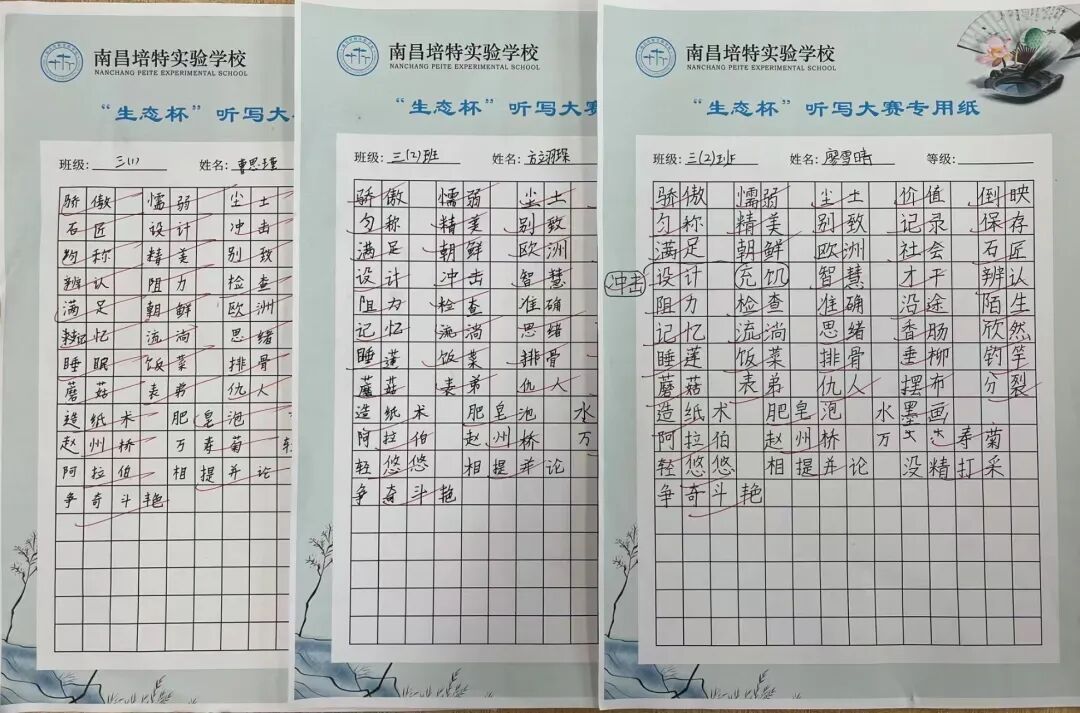 南昌培特实验学校
NANCHANG PEITE EXPERIMENTAL SCHOOL
“生态杯”听写大
班级: 三(1) 姓名: 曹思瑾
骄傲 懦弱 尘土
石匠 设计 冲击
匀称 精美 别致
辨认 阻力 检查
满足 朝鲜 欧洲
记忆 流淌 思绪
睡眠 饭菜 排骨
蘑菇 表弟 仇人
造纸术 肥皂泡
赵州桥 万寿菊 轻
阿拉伯 相提并论
争奇斗艳
南昌培特实验学校
NANCHANG PEITE EXPERIMENTAL SCHOOL
“生态杯”听写大赛
班级: 三(2)班 姓名: 方翊琛
骄傲 懦弱 尘土
匀称 精美 别致
满足 朝鲜 欧洲
设计 冲击 智慧
阻力 检查 准确
记忆 流淌 思绪
睡莲 饭菜 排骨
蘑菇 表弟 仇人
造纸术 肥皂泡 水
阿拉伯 赵州桥 万
轻悠悠 相提并论
争奇斗艳
南昌培特实验学校
NANCHANG PEITE EXPERIMENTAL SCHOOL
“生态杯”听写大赛专用纸
班级: 三(2)班 姓名: 廖雪晴 等级:
骄傲 懦弱 尘土 价值 倒映
匀称 精美 别致 记录 保存
满足 朝鲜 欧洲 社会 石匠
冲击 设计 充饥 智慧 才干 辨认
阻力 检查 准确 沿途 陌生
记忆 流淌 思绪 香肠 欣然
睡莲 饭菜 排骨 垂柳 钓竿
蘑菇 表弟 仇人 摆布 分裂
造纸术 肥皂泡 水墨画
阿拉伯 赵州桥 万 寿菊
轻悠悠 相提并论 没精打采
争奇斗艳